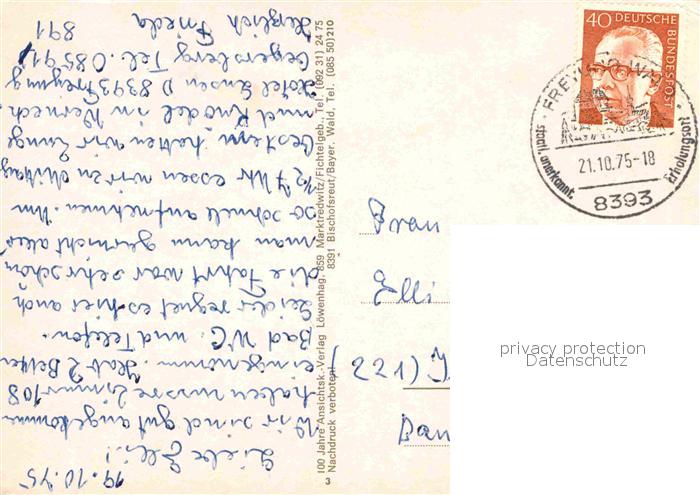 19.10.75
Liebe Elli!
Wir sind gut angekommen
haben unsere Zimmer 108
eingenomm. Hab 2 Betten
Bad WC. und Telefon.
Leider regnet es hier auch
die Fahrt war sehr schön
man kann garnicht alles
so schnell aufnehmen. Um
1/2 7 Uhr essen wir zu Mittag
gestern hatten wir Zunge
und Knödel im
Hotel D 8393 Freyung
Geyersberg Tel. 08591/
891 Herzlich Frieda
100 Jahre Ansichtsk.-Verlag Löwenhag, 859 Marktredwitz/Fichtelgeb., Tel. (092 31) 24 75
Nachdruck verboten! 8391 Bischofsreut/Bayer. Wald, Tel. (085 50) 210
3
40 DEUTSCHE BUNDESPOST
staatl. anerkannt. Erholungsort
21.10.75-18
8393
Frau
Elli
(221)
privacy protection
Datenschutz